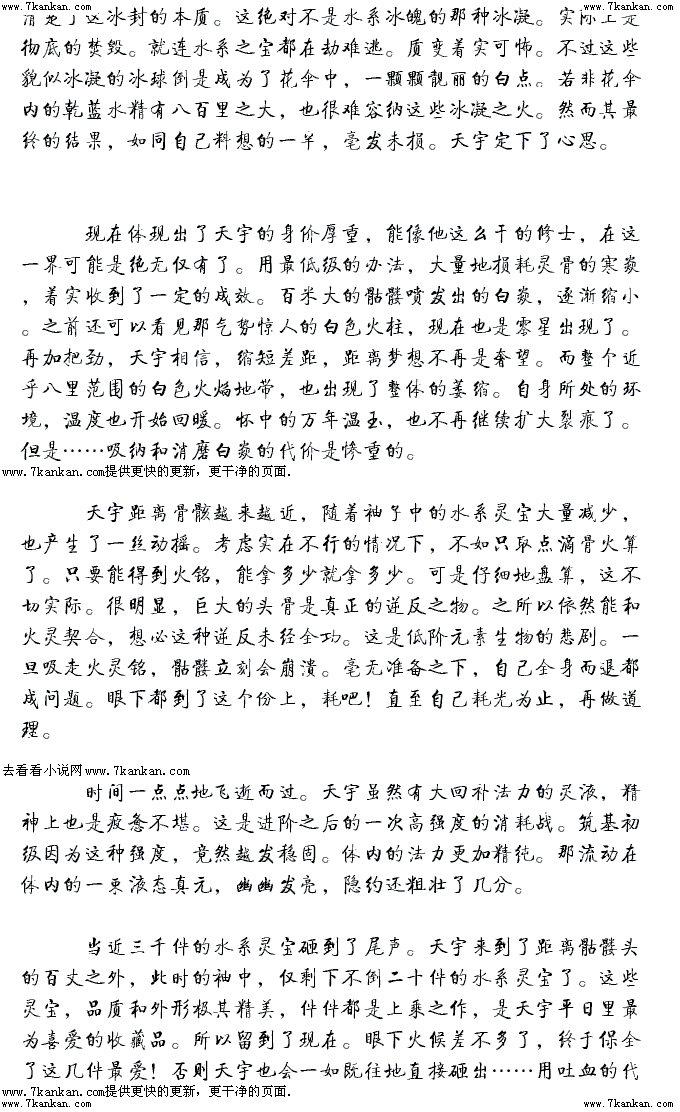 www.7kankan.com www.7kankan.com
清楚了这冰封的本质。这绝对不是水系冰魄的那种冰凝。实际上是
彻底的焚毁。就连水系之宝都在劫难逃。质变着实可怖。不过这些
貌似冰凝的冰球倒是成为了花伞中，一颗颗靓丽的白点。若非花伞
内的乾蓝水精有八百里之大，也很难容纳这些冰凝之火。然而其最
终的结果，如同自己料想的一半，毫发未损。天宇定下了心思。
现在体现出了天宇的身价厚重，能像他这么干的修士，在这
一界可能是绝无仅有了。用最低级的办法，大量地损耗灵骨的寒焱
，着实收到了一定的成效。百米大的骷髅喷发出的白焱，逐渐缩小
。之前还可以看见那气势惊人的白色火柱，现在也是零星出现了。
再加把劲，天宇相信，缩短差距，距离梦想不再是奢望。而整个近
乎八里范围的白色火焰地带，也出现了整体的萎缩。自身所处的环
境，温度也开始回暖。怀中的万年温玉，也不再继续扩大裂痕了。
但是……吸纳和消磨白焱的代价是惨重的。
www.7kankan.com提供更快的更新，更干净的页面.
天宇距离骨骸越来越近，随着袖子中的水系灵宝大量减少，
也产生了一丝动摇。考虑实在不行的情况下，不如只取点滴骨火算
了。只要能得到火铭，能拿多少就拿多少。可是仔细地盘算，这不
切实际。很明显，巨大的头骨是真正的逆反之物。之所以依然能和
火灵契合，想必这种逆反未经全功。这是低阶元素生物的悲剧。一
旦吸走火灵铭，骷髅立刻会崩溃。毫无准备之下，自己全身而退都
成问题。眼下都到了这个份上，耗吧！直至自己耗光为止，再做道
理。
去看看小说网www.7kankan.com
时间一点点地飞逝而过。天宇虽然有大回补法力的灵液，精
神上也是疲惫不堪。这是进阶之后的一次高强度的消耗战。筑基初
级因为这种强度，竟然越发稳固。体内的法力更加精纯。那流动在
体内的一束液态真元，幽幽发亮，隐约还粗壮了几分。
当近三千件的水系灵宝砸到了尾声。天宇来到了距离骷髅头
的百丈之外，此时的袖中，仅剩下不倒二十件的水系灵宝了。这些
灵宝，品质和外形极其精美，件件都是上乘之作，是天宇平日里最
为喜爱的收藏品。所以留到了现在。眼下火候差不多了，终于保全
了这几件最爱！否则天宇也会一如既往地直接砸出……用吐血的代
www.7kankan.com提供更快的更新，更干净的页面.
www.7kankan.com www.7kankan.com